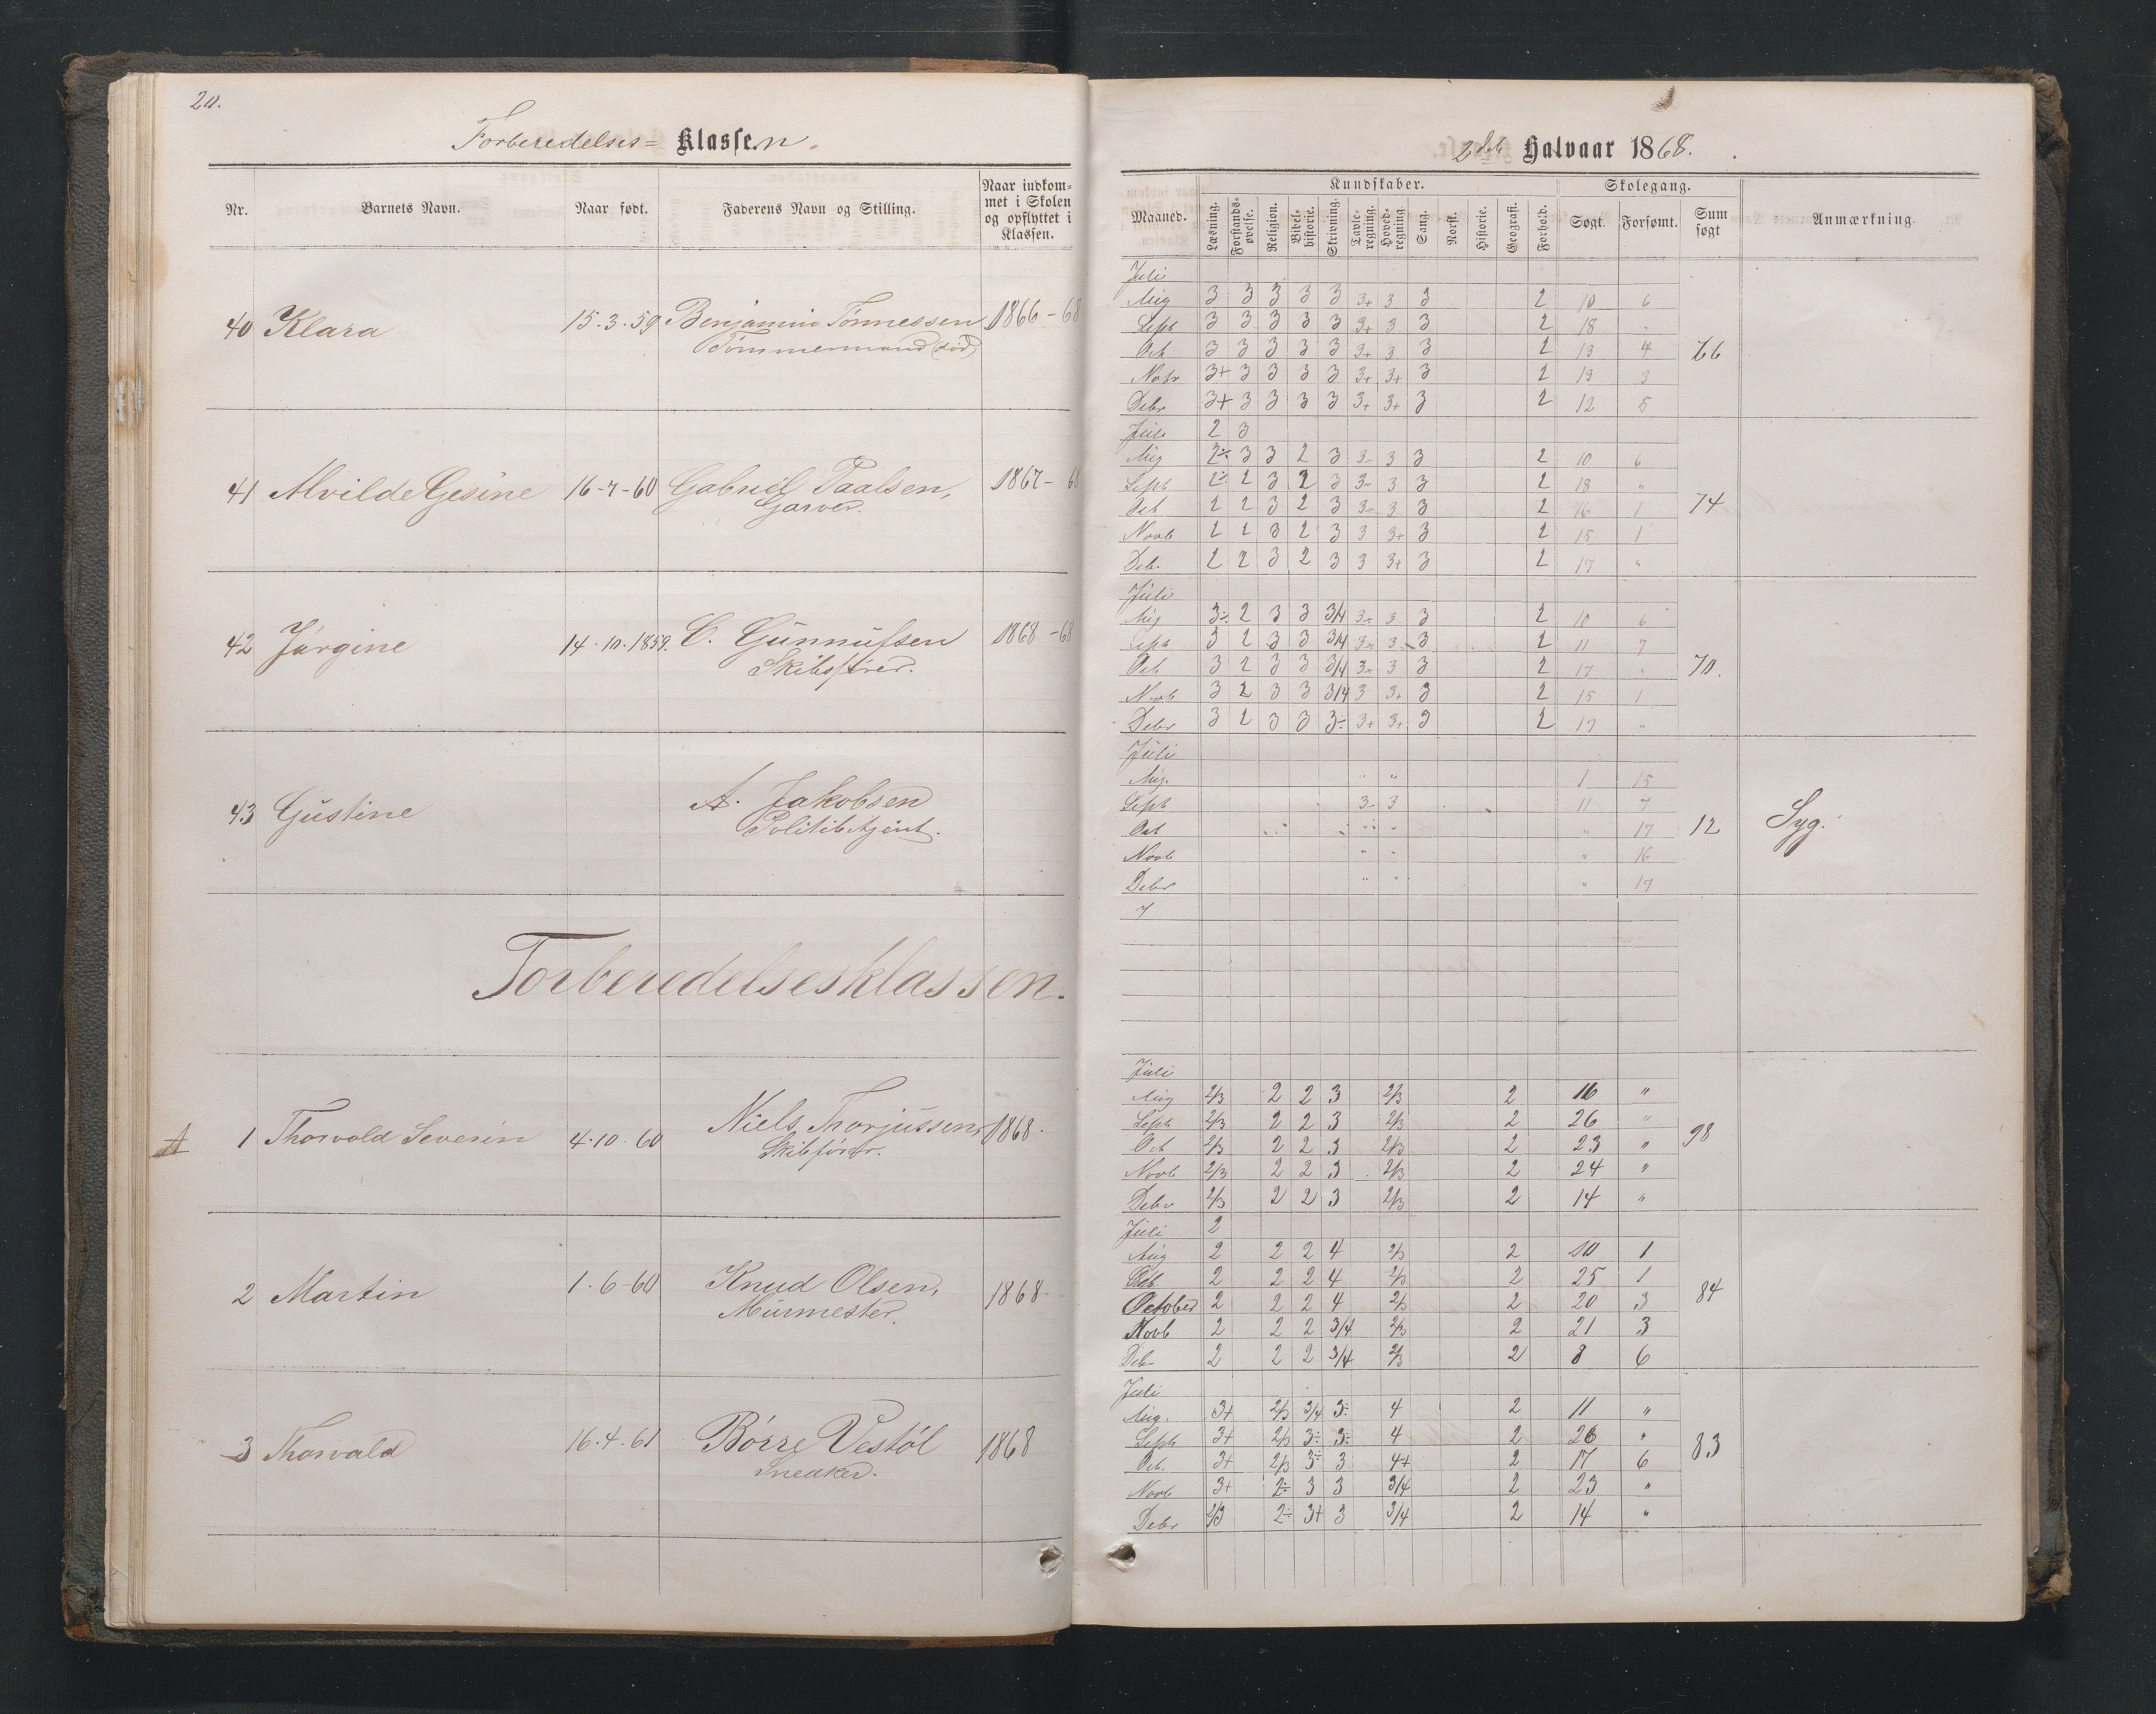 20.
Forberedelses= Klassen.
Nr. Barnets Navn. Naar født. Faderens Navn og Stilling. Naar indkommet i Skolen og opflyttet i Klassen.
40 Klara 15.3.59 Benjamin Tønnessen 1866-68
Tømmermand (død)
41 Alvilde Gesine 16-7-60 Gabriel Paalsen, 1867-68
Garver.
42 Jørgine 14.10.1859. C. Gunnufsen 1868-68
Skibsfører.
43 Gustine A. Jakobsen
Politibetjent.
Forberedelsesklassen.
A 1 Thorvald Severin 4.10.60 Niels Thorjussen 1868.
Skibsfører.
2 Martin 1.6-60 Knud Olsen, 1868.
Murmester.
3 Thorvald 16.4.61 Børre Vestøl 1868
Snedker.
2det Halvaar 1868.
Maaned. Kundskaber. Skolegang. Sum søgt Anmærkning.
Læsning. Forstandsøvelse. Religion. Bibelhistorie. Skrivning. Tavleregning. Hovedregning. Sang. Norsk. Historie. Geografi. Forhold. Søgt. Forsømt.
Juli
Aug 3 3 3 3 3 3+ 3 3 2 10 6
Sept 3 3 3 3 3 3+ 3 3 2 18 "
Oct 3 3 3 3 3 3+ 3 3 2 13 4 66
Nobr 3+ 3 3 3 3 3+ 3+ 3 2 13 3
Debr 3+ 3 3 3 3 3+ 3+ 3 2 12 5
Juli 2 3
Aug 2÷ 3 3 2 3 3- 3 3 2 10 6
Sept 2÷ 2 3 2 3 3- 3 3 2 18 "
Oct 2 2 3 2 3 3- 3 3 2 16 1 74
Novb 2 2 3 2 3 3 3+ 3 2 15 1
Deb. 2 2 3 2 3 3 3+ 3 2 17 "
Juli
Aug 3÷ 2 3 3 3/4 3- 3 3 2 10 6
Sept 3 2 3 3 3/4 3- 3 3 2 11 7
Oct 3 2 3 3 3/4 3- 3 3 2 17 " 70.
Novb 3 2 3 3 3/4 3 3+ 3 2 15 1
Debr 3 2 3 3 3÷ 3+ 3+ 3 2 17 "
Juli
Aug. " " 1 15
Sept 3- 3 11 7
Oct " " " 17 12 Syg.
Novb " " " 16
Debr " " " 17
7
Juli
Aug 2/3 2 2 3 2/3 2 16 "
Sept 2/3 2 2 3 2/3 2 26 "
Oct 2/3 2 2 3 2/3 2 23 " 98
Novb 2/3 2 2 3 2/3 2 24 "
Debr 2/3 2 2 3 2/3 2 14 "
Juli 2
Aug 2 2 2 4 2/3 2 10 1
2 2 2 4 2/3 2 25 1
October 2 2 2 4 2/3 2 20 3 84
Novb 2 2 2 3/4 2/3 2 21 3
Deb 2 2 2 3/4 2/3 2 8 6
Juli
Aug. 3+ 2/3 3/4 3÷ 4 2 11 "
Sept 3+ 2/3 3÷ 3÷ 4 2 26 "
Oct. 3+ 2/3 3÷ 3 4+ 2 17 6 83
Novb 3+ 2÷ 3 3 3/4 2 23 "
Debr 2/3 2÷ 3+ 3 3/4 2 14 "